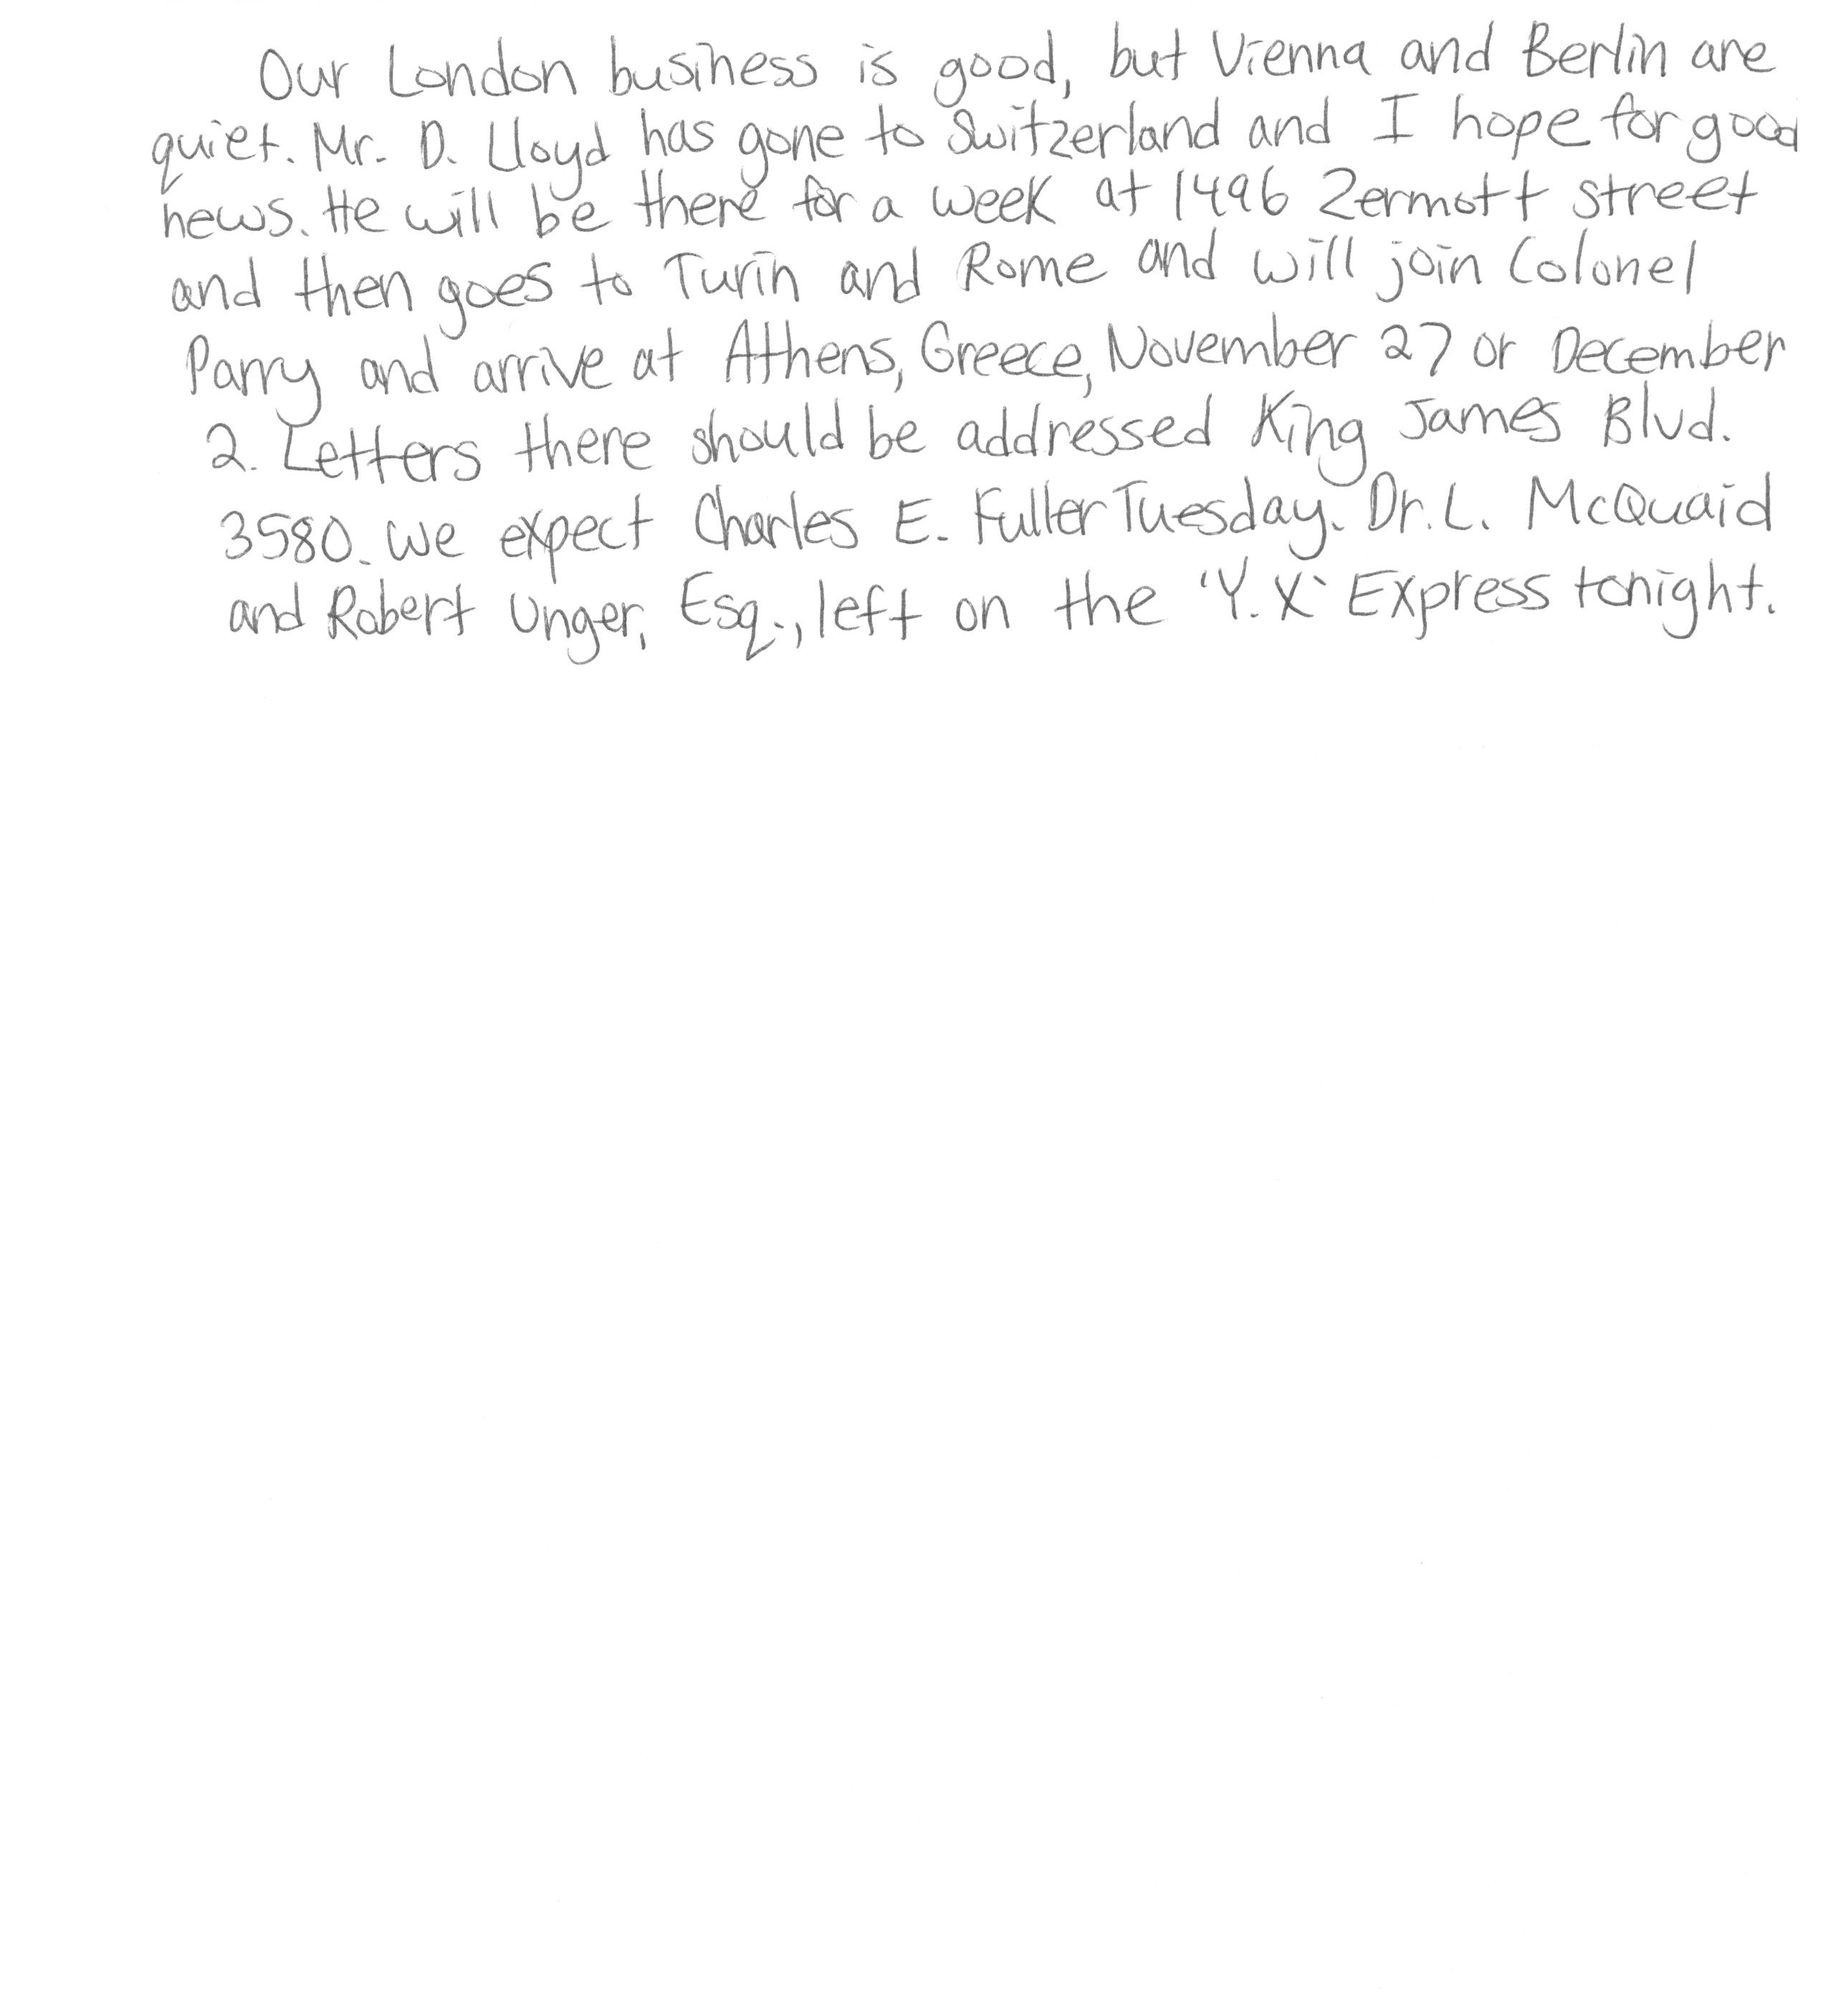 Our London business is good, but Vienna and Berlin are
quiet. Mr. D. Lloyd has gone to Switzerland and I hope for good
news. He will be there for a week at 1496 Zermott street
and then goes to Turin and Rome and will join Colonel
Parry and arrive at Athens, Greece, November 27 or December
2. Letters there should be addressed King James Blvd.
3580. We expect Charles E. Fuller Tuesday. Dr. L. McQuaid
and Robert Unger, Esq., left on the 'Y.X' Express tonight.